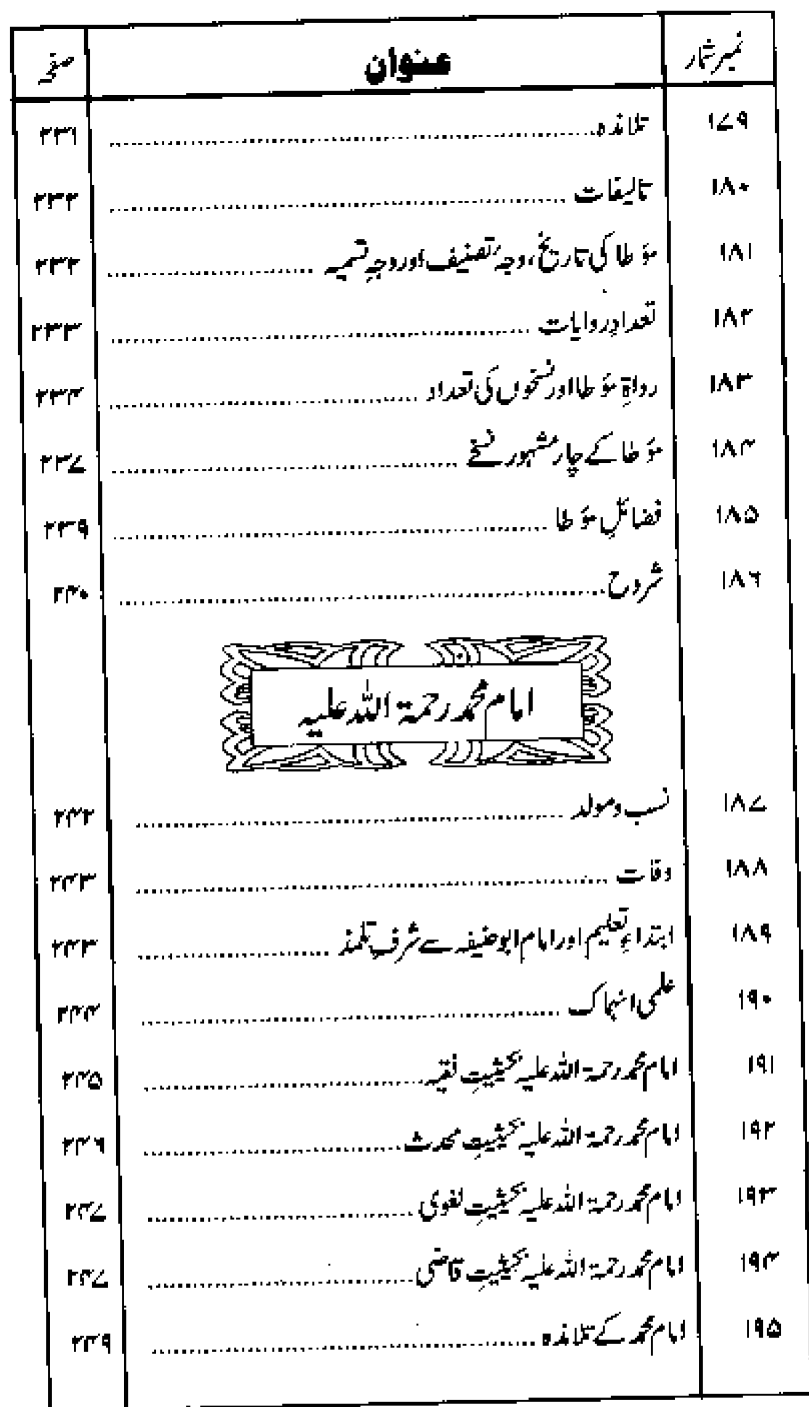 نمبر شمار عنوان صفحہ
۱۷۹ تلامذہ ۲۳۱
۱۸۰ تالیفات ۲۳۲
۱۸۱ مؤطا کی تاریخ، وجہ تصنیف اور وجہِ تسمیہ ۲۳۲
۱۸۲ تعدادِ روایات ۲۳۳
۱۸۳ رواۃِ مؤطا اور نسخوں کی تعداد ۲۳۴
۱۸۴ مؤطا کے چار مشہور نسخے ۲۳۷
۱۸۵ فضائلِ مؤطا ۲۳۹
۱۸۶ شروح ۲۴۰
امام محمد رحمۃ اللہ علیہ
۱۸۷ نسب ومولد ۲۴۲
۱۸۸ وفات ۲۴۳
۱۸۹ ابتداءِ تعلیم اور امام ابوحنیفہ سے شرفِ تلمذ ۲۴۳
۱۹۰ علمی انہماک ۲۴۴
۱۹۱ امام محمد رحمۃ اللہ علیہ بحیثیتِ فقیہ ۲۴۵
۱۹۲ امام محمد رحمۃ اللہ علیہ بحیثیتِ محدث ۲۴۶
۱۹۳ امام محمد رحمۃ اللہ علیہ بحیثیتِ لغوی ۲۴۷
۱۹۴ امام محمد رحمۃ اللہ علیہ بحیثیتِ قاضی ۲۴۷
۱۹۵ امام محمد کے تلامذہ ۲۴۹